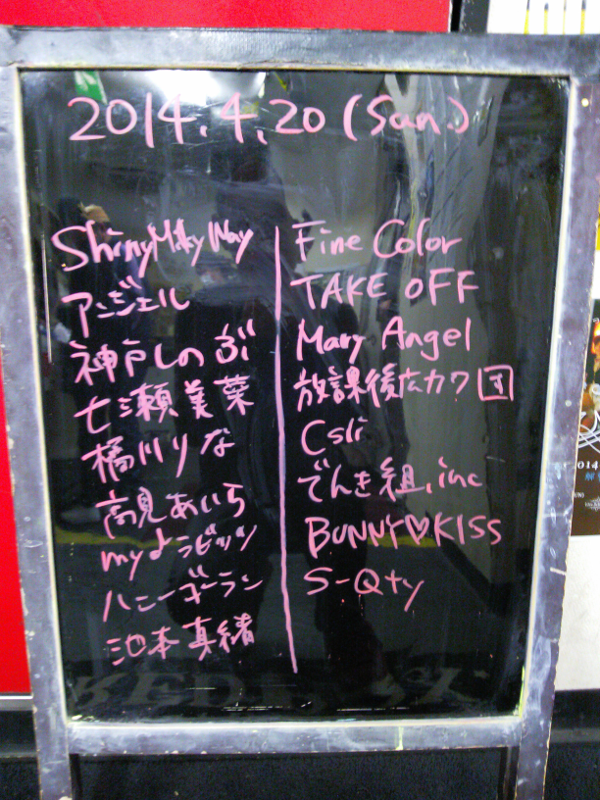 2014.4.20 (Sun.)
Shiny Milky Way
アンジェル
神戸しのぶ
七瀬美菜
橘川りな
高見あいら
myようラビッツ
ハニーゴーラン
池本真緒
Fine Color
TAKE OFF
Mary Angel
放課後広力ワ団
Csli
でんき組.inc
BUNNY♡KISS
S-Qty
2014